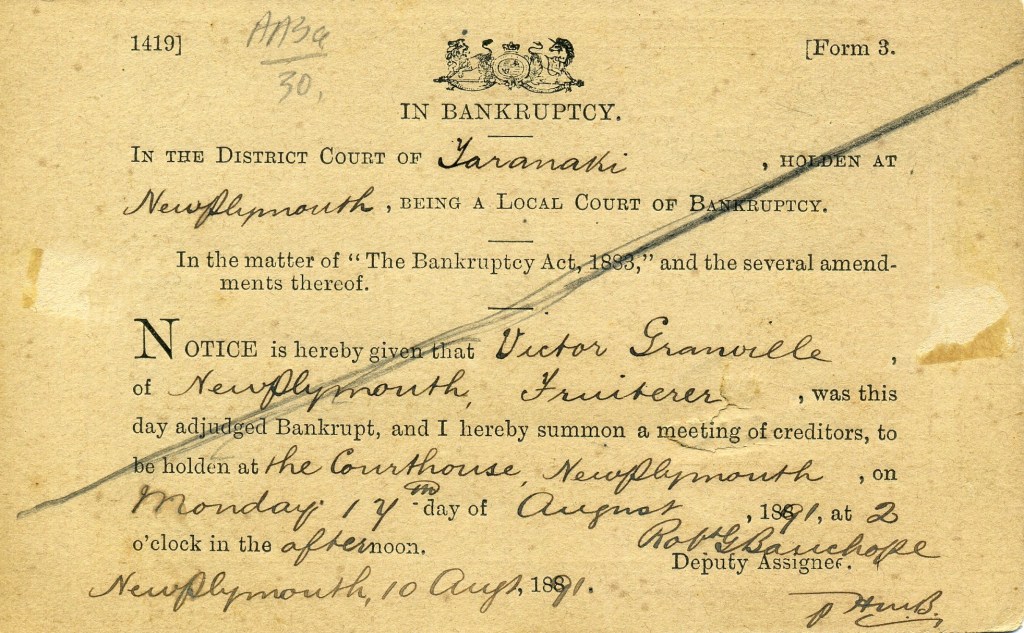 1419]
30.
[Form 3.
IN BANKRUPTCY.
IN THE DISTRICT COURT OF Taranaki, HOLDEN AT
New Plymouth, BEING A LOCAL COURT OF BANKRUPTCY.
In the matter of “The Bankruptcy Act, 1883,” and the several amend-
ments thereof.
NOTICE is hereby given that Victor Granville,
of New Plymouth, Fruiterer, was this
day adjudged Bankrupt, and I hereby summon a meeting of creditors, to
be holden at the Courthouse, New Plymouth, on
Monday 17th day of August, 1891, at 2
o'clock in the afternoon.
Robt G Bauchope
Deputy Assignee.
New Plymouth, 10 Augt, 1891.
p HMB.